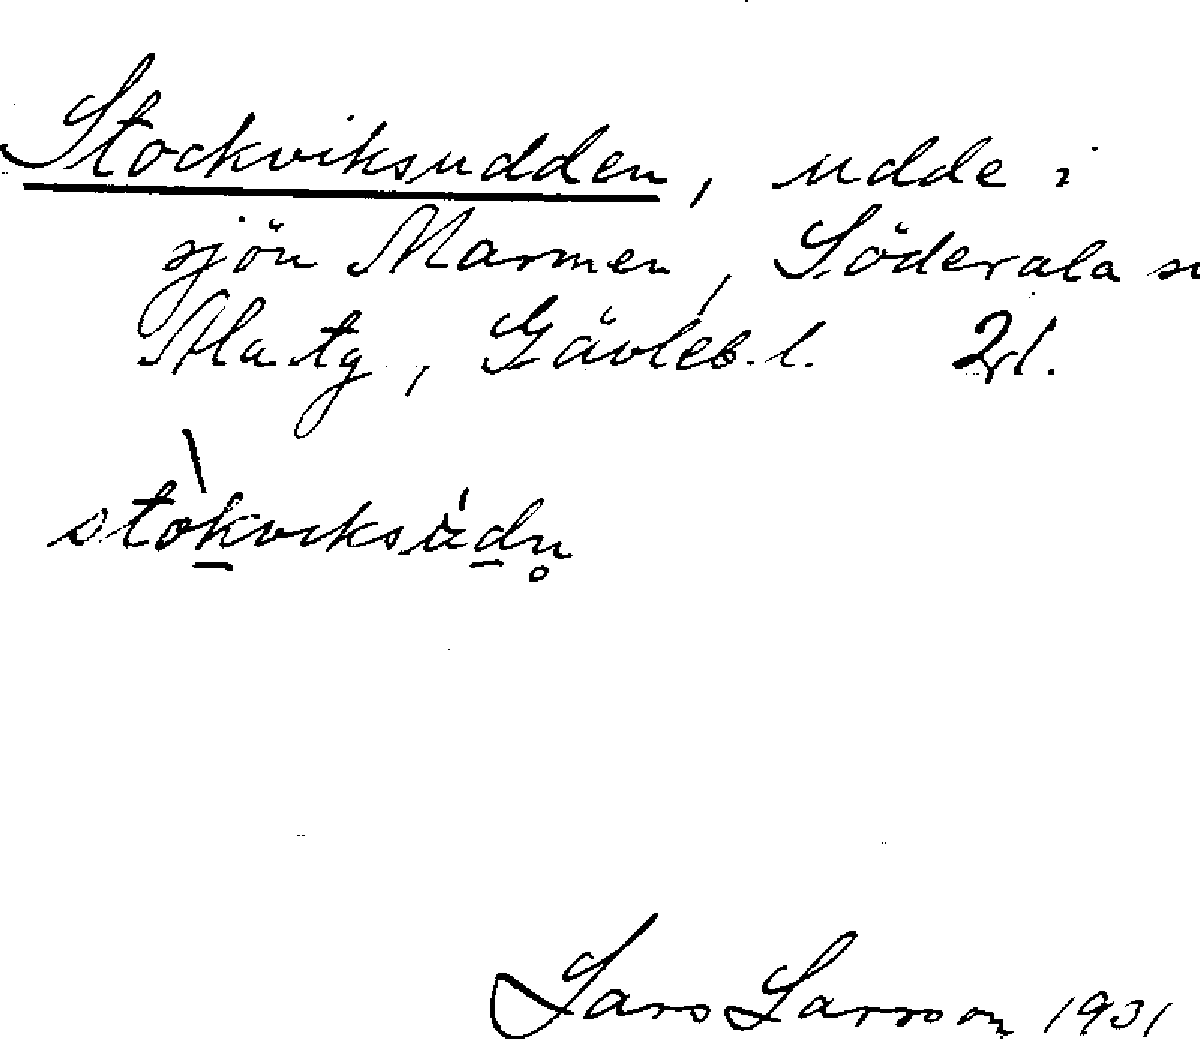 Stockviksudden, udde i
sjön Marmen, Söderala sn
Ala tg, Gävleb. l.
Lars Larsson 1931